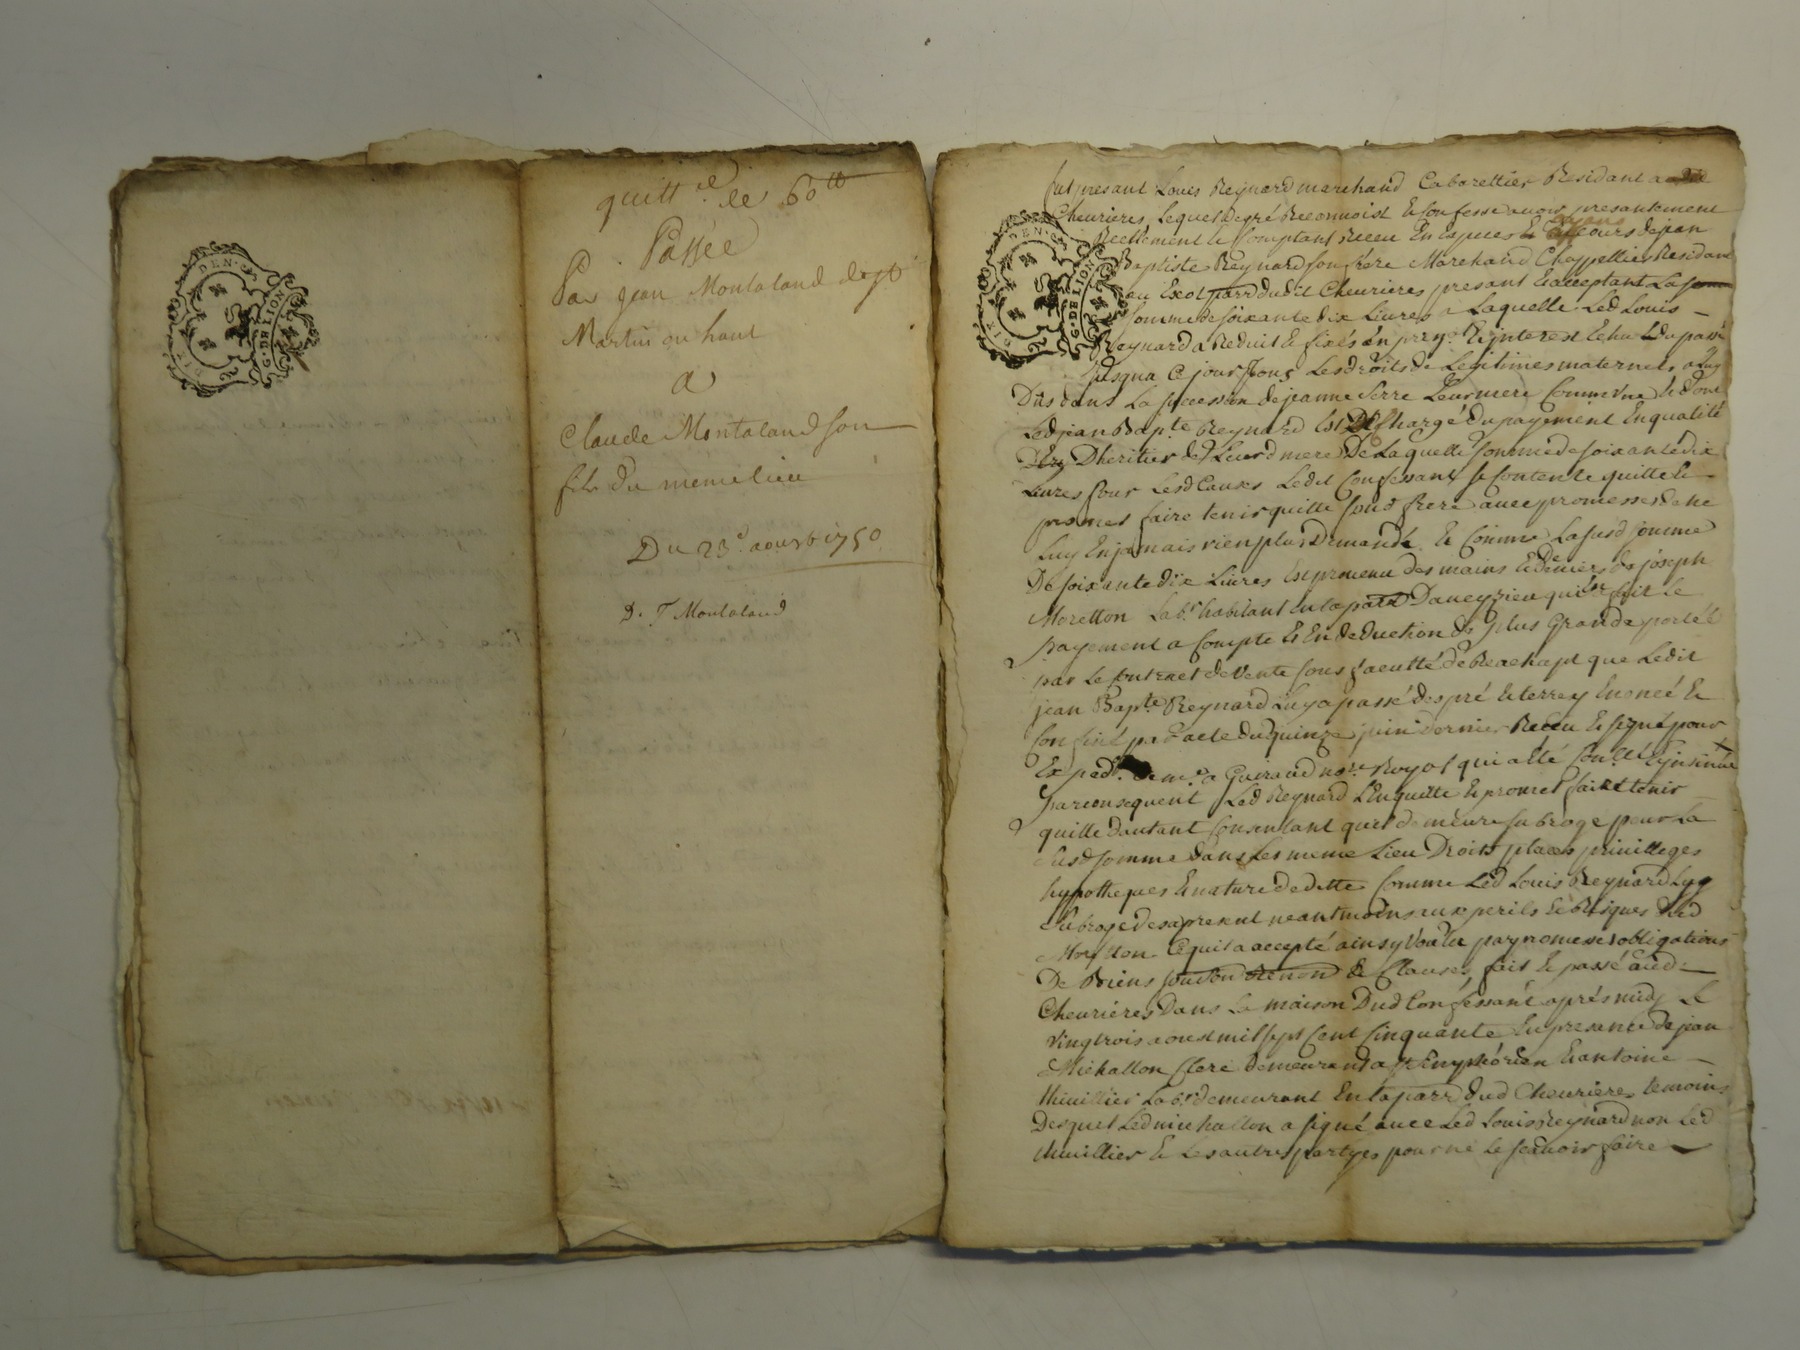 quitt.ce de 60 tt
Passée
Par Jean Montaland de st
Martin en haut
a
Claude Montaland son
fils du meme lieu
Du 23e aoust 1750
D. J Montaland
DEN.C
G.DE LION
DEN.C
G.DE LION
fut presant Louis Reynard marchand Cabarettier Residant a
Cheurieres Lequel de gré Reconnoist & Confesse auoir presantement
Reellement & Comptant Receu En Especes ayant Cours de jean
Baptiste Reynard son frere Marchand Chappellier Residant
au parr dudit Cheurieres presant & acceptant La
somme de soixante dix Liures a Laquelle Led Louis
Reynard a Reduit & fixés En & jnterest Echu du passé
jusqua Ce jour Tous Les droits de Legitimes maternels a luy
Dus dans La succession de jeanne Serre Leur mere Commune & dont
Led jean Bap.te Reynard Est Chargé du payement En qualité
D'heritier de Leurd mere De Laquelle somme de soixante dix
Liures pour Lesd Causes Ledit Confessant se Contente quitte &
promet faire tenir quitte sond frere auec promesses de ne
Luy En jamais rien plus Demandé & Comme La susd somme
De soixante dix Liures Est prouenu des mains & deniers de joseph
Moretton Lab.r habitant En la parr D'aueyzieu qui En fait le
payement a Compte & En deduction de plus Grande portéé
par Le Contract de Vente sous faculté de Reachapt que Ledit
jean Bap.te Reynard Luy a passé des pré & terre y Enoncé &
Confiné par acte du quinze juin dernier Receu & signé pour
Exped. Guiraud no.re Royal qui a été Con.llé & jnsinué
par consequent Led Reynard L'En quitte & promet faire tenir
quitte d'autant Consentant qu'il demeure subrogé pour La
susd somme dans Les meme Lieu Droits places priuilleges
hypotheques & nature de dette Comme Led Louis Reynard L'y
subroge des a present neantmoins aux perils & Risques dud
Moretton Ce qui l a accepté ainsy Voulu par promesses obligations
De Biens & Clauses fait & passé aud
Cheurieres Dans La maison Dud Confessant aprés midy Le
Vingtrois aoust mil sept Cent Cinquante En presence de jean
Michallon Clerc demeurant a st Simphorien & antoine
thiuillier Lab.r demeurant En la parr dud Cheurieres temoins
Desquel Led michallon a signé auec Led Louis Reynard non Led
thiuillier & Les autres partyes pour ne Le scauoir faire